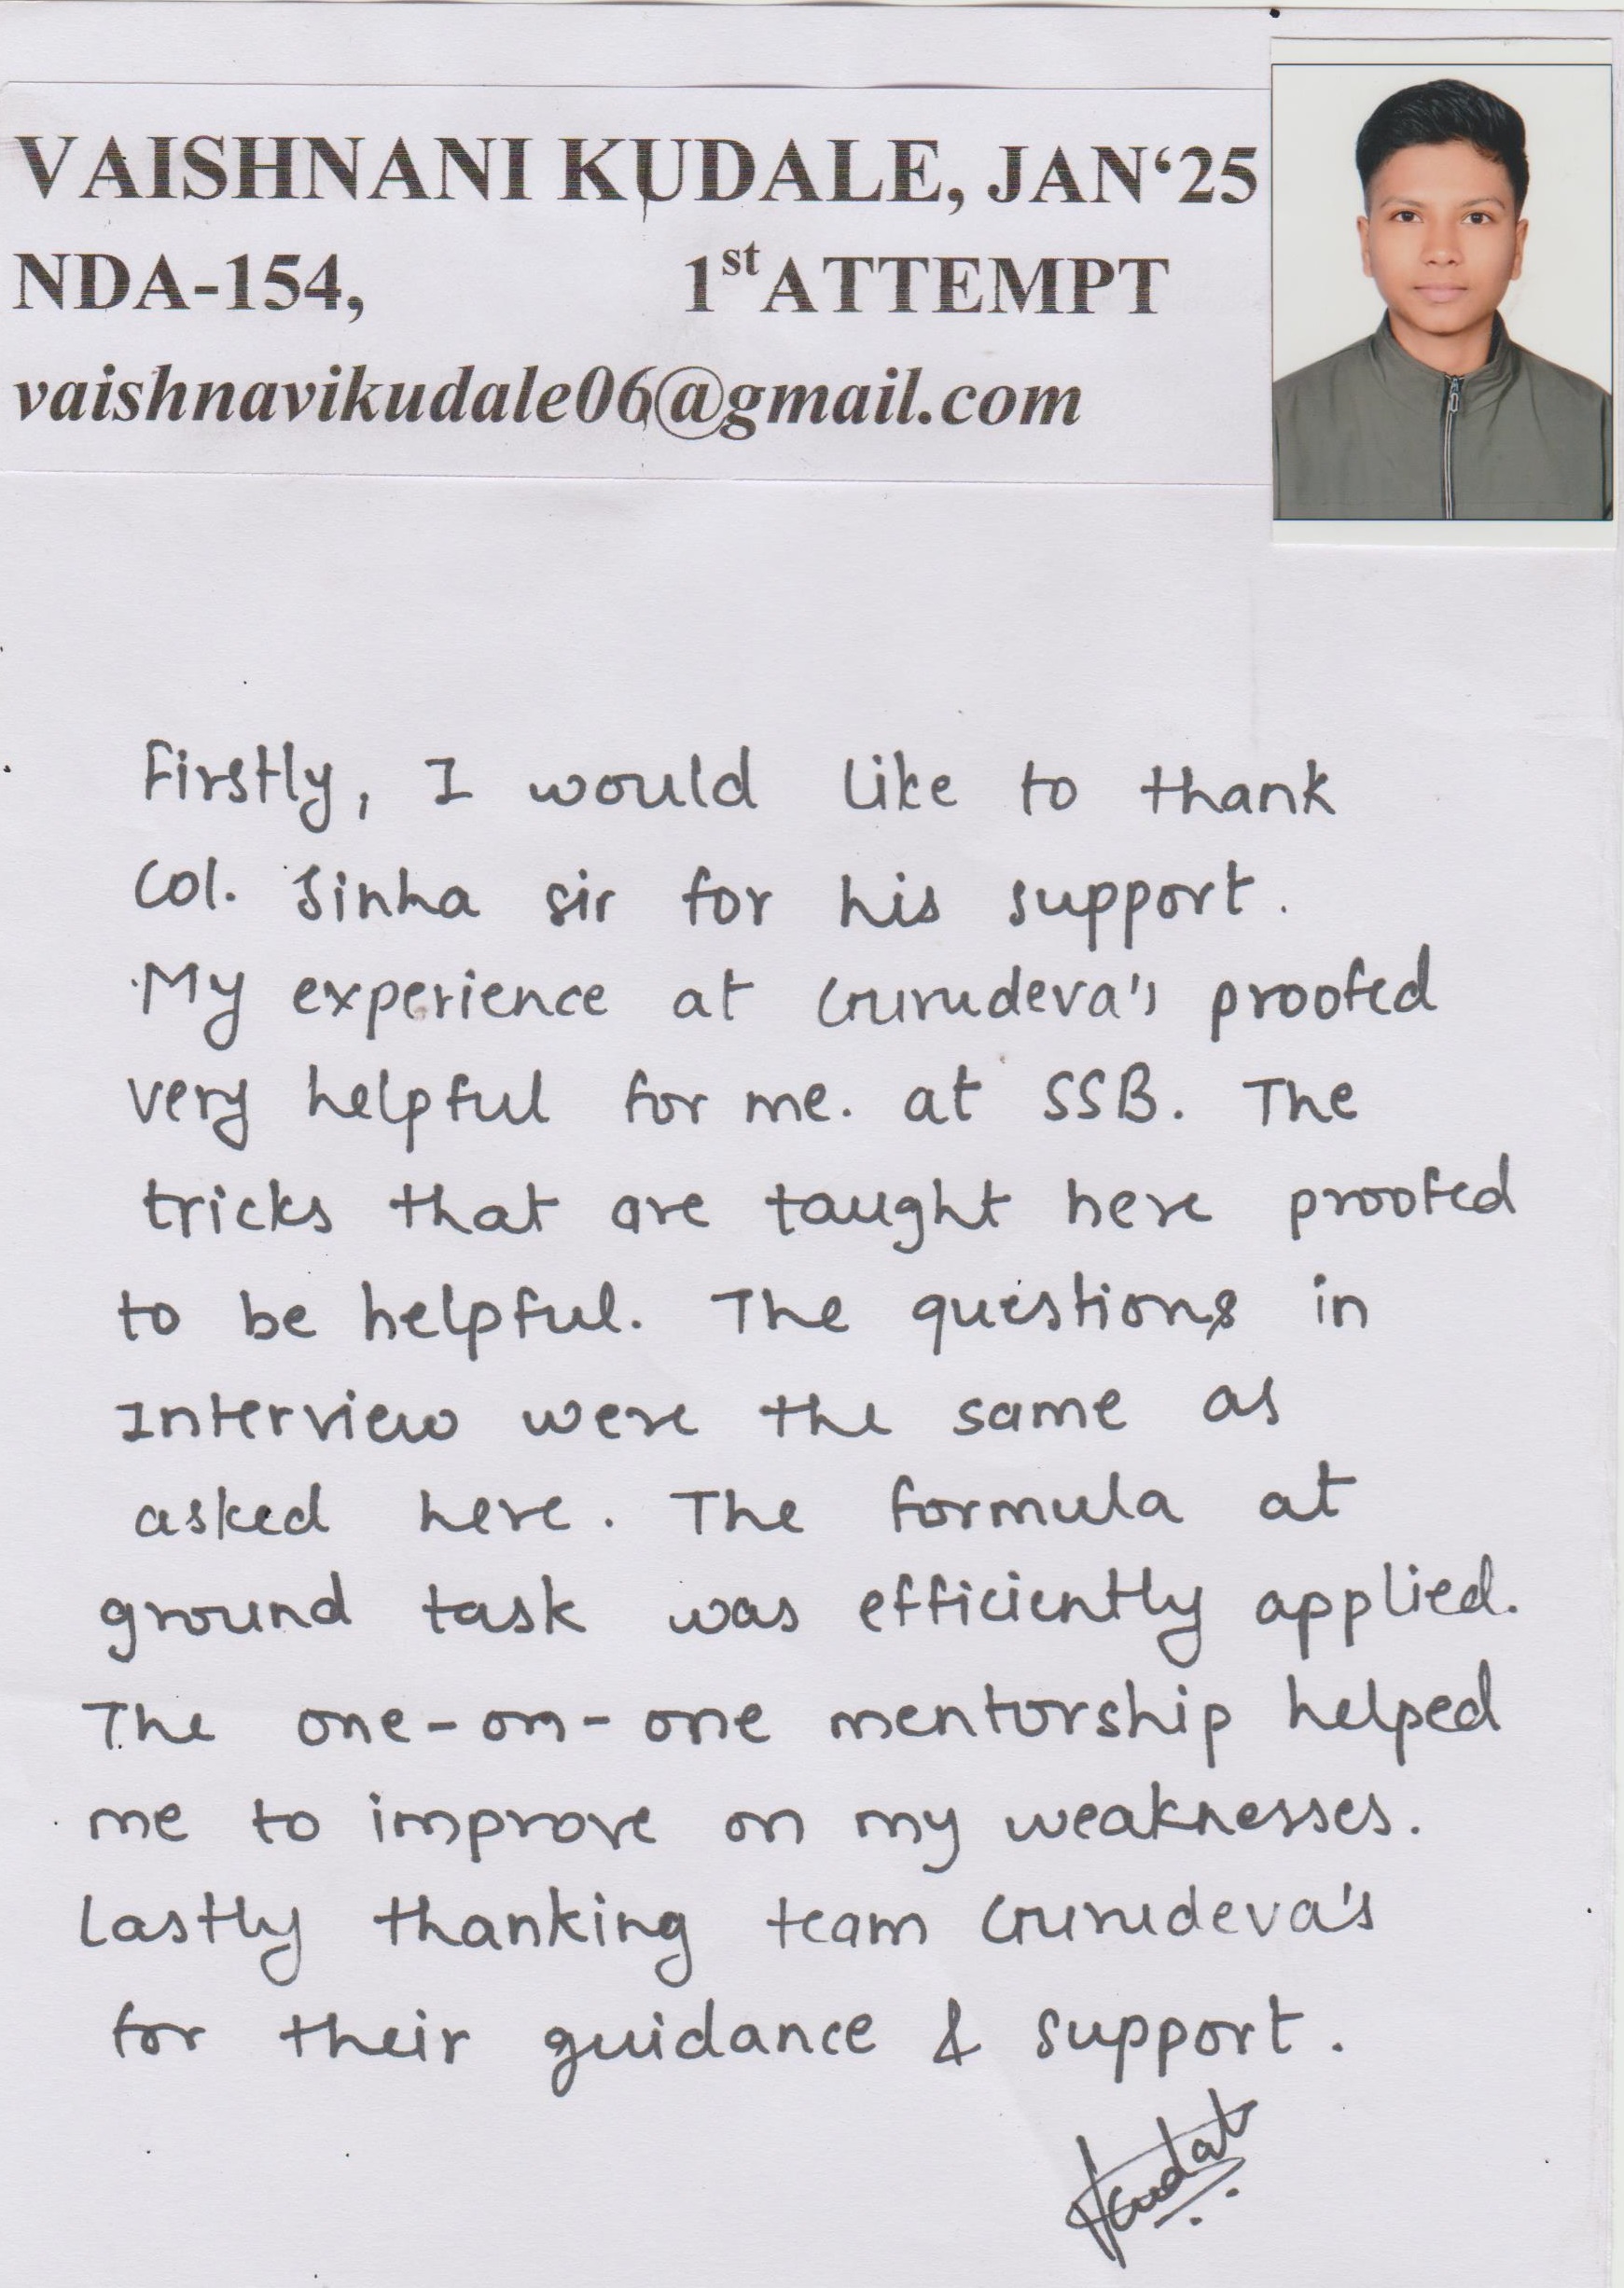 VAISHNANI KUDALE, JAN‘25
NDA-154, 1st ATTEMPT
vaishnavikudale06@gmail.com
Firstly, I would like to thank
Col. Sinha sir for his support.
My experience at Gurudeva's proofed
very helpful for me. at SSB. The
tricks that are taught here proofed
to be helpful. The questions in
Interview were the same as
asked here. The formula at
ground task was efficiently applied.
The one-on-one mentorship helped
me to improve on my weaknesses.
Lastly thanking team Gurudeva's
for their guidance & support.